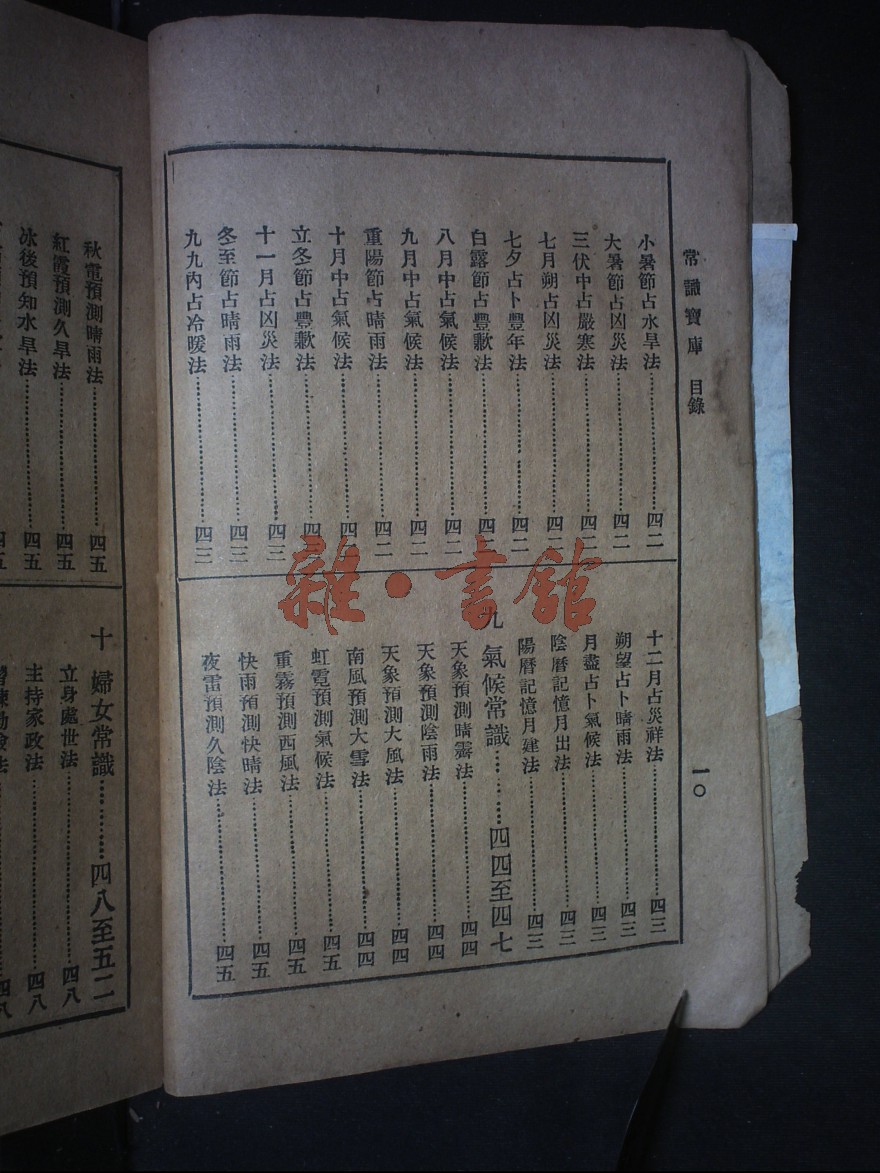 常識寶庫 目錄
一〇
小暑節占水旱法……四二
大暑節占凶災法……四二
三伏中占嚴寒法……四二
七月朔占凶災法……四二
七夕占卜豐年法……四二
白露節占豐歉法……四二
八月中占氣候法……四二
九月中占氣候法……四二
重陽節占晴雨法……四二
十月中占氣候法……四二
立冬節占豐歉法……四三
十一月占凶災法……四三
冬至節占晴雨法……四三
九九內占冷暖法……四三
十二月占災祥法……四三
朔望占卜晴雨法……四三
月盡占卜氣候法……四三
陰曆記憶月出法……四三
陽曆記憶月建法……四三
九 氣候常識……四四至四七
天象預測晴霽法……四四
天象預測陰雨法……四四
天象預測大風法……四四
南風預測大雪法……四四
虹霓預測氣候法……四五
重霧預測西風法……四五
快雨預測快晴法……四五
夜雷預測久陰法……四五
秋電預測晴雨法……四五
紅霞預測久旱法……四五
冰後預知水旱法……四五
十 婦女常識……四八至五二
立身處世法……四八
主持家政法……四八
雜·書館